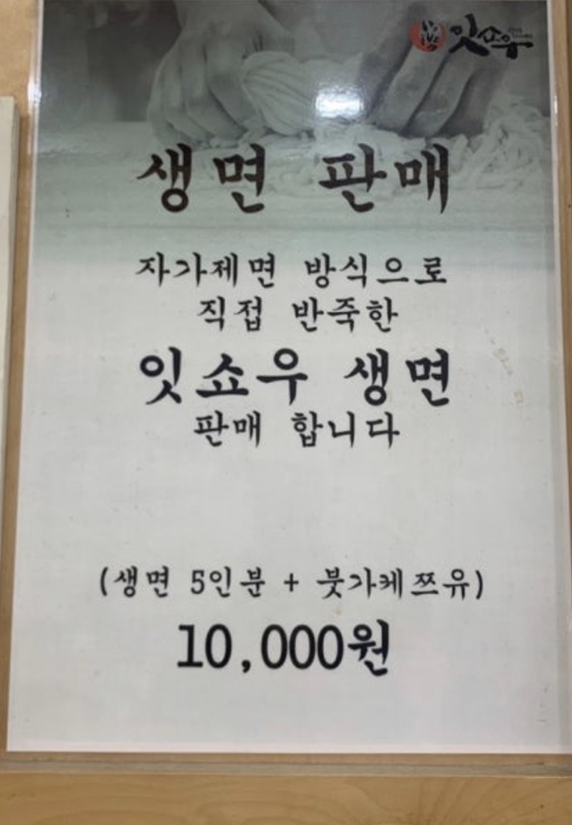 잇쇼우
생면 판매
자가제면 방식으로
직접 반죽한
잇쇼우 생면
판매 합니다
(생면 5인분 + 붓가케쯔유)
10,000원